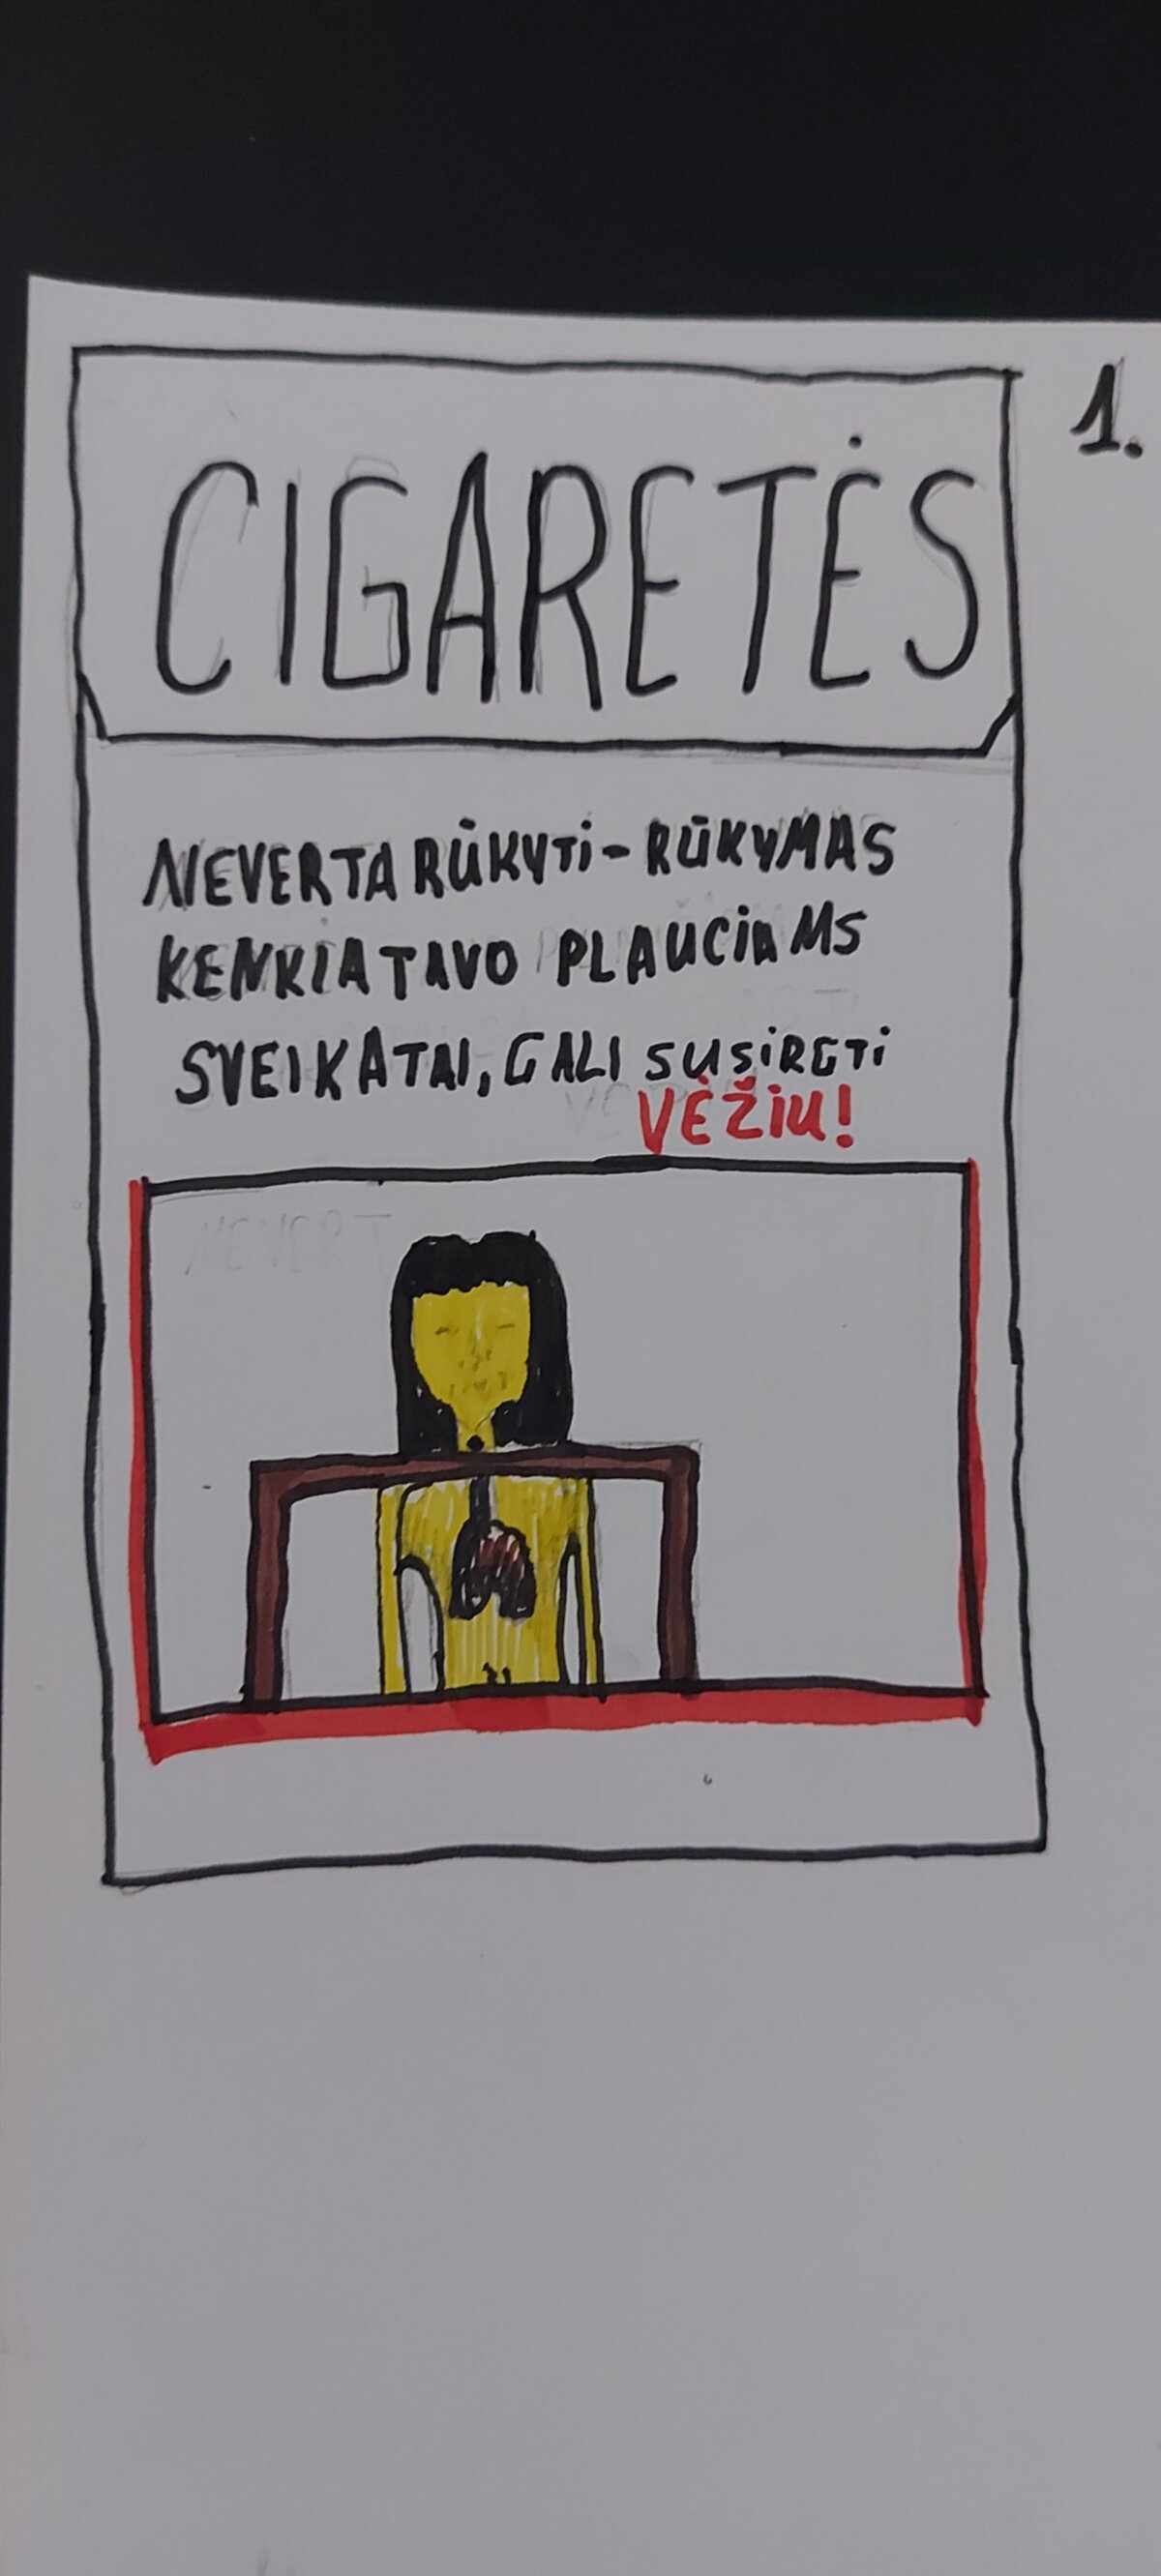 1.
CIGARETĖS
NEVERTA RŪKYTI - RŪKYMAS
KENKIA TAVO PLAUCIAMS
SVEIKATAI, GALI SUSIRGTI
VĖŽIU!
NEVERT